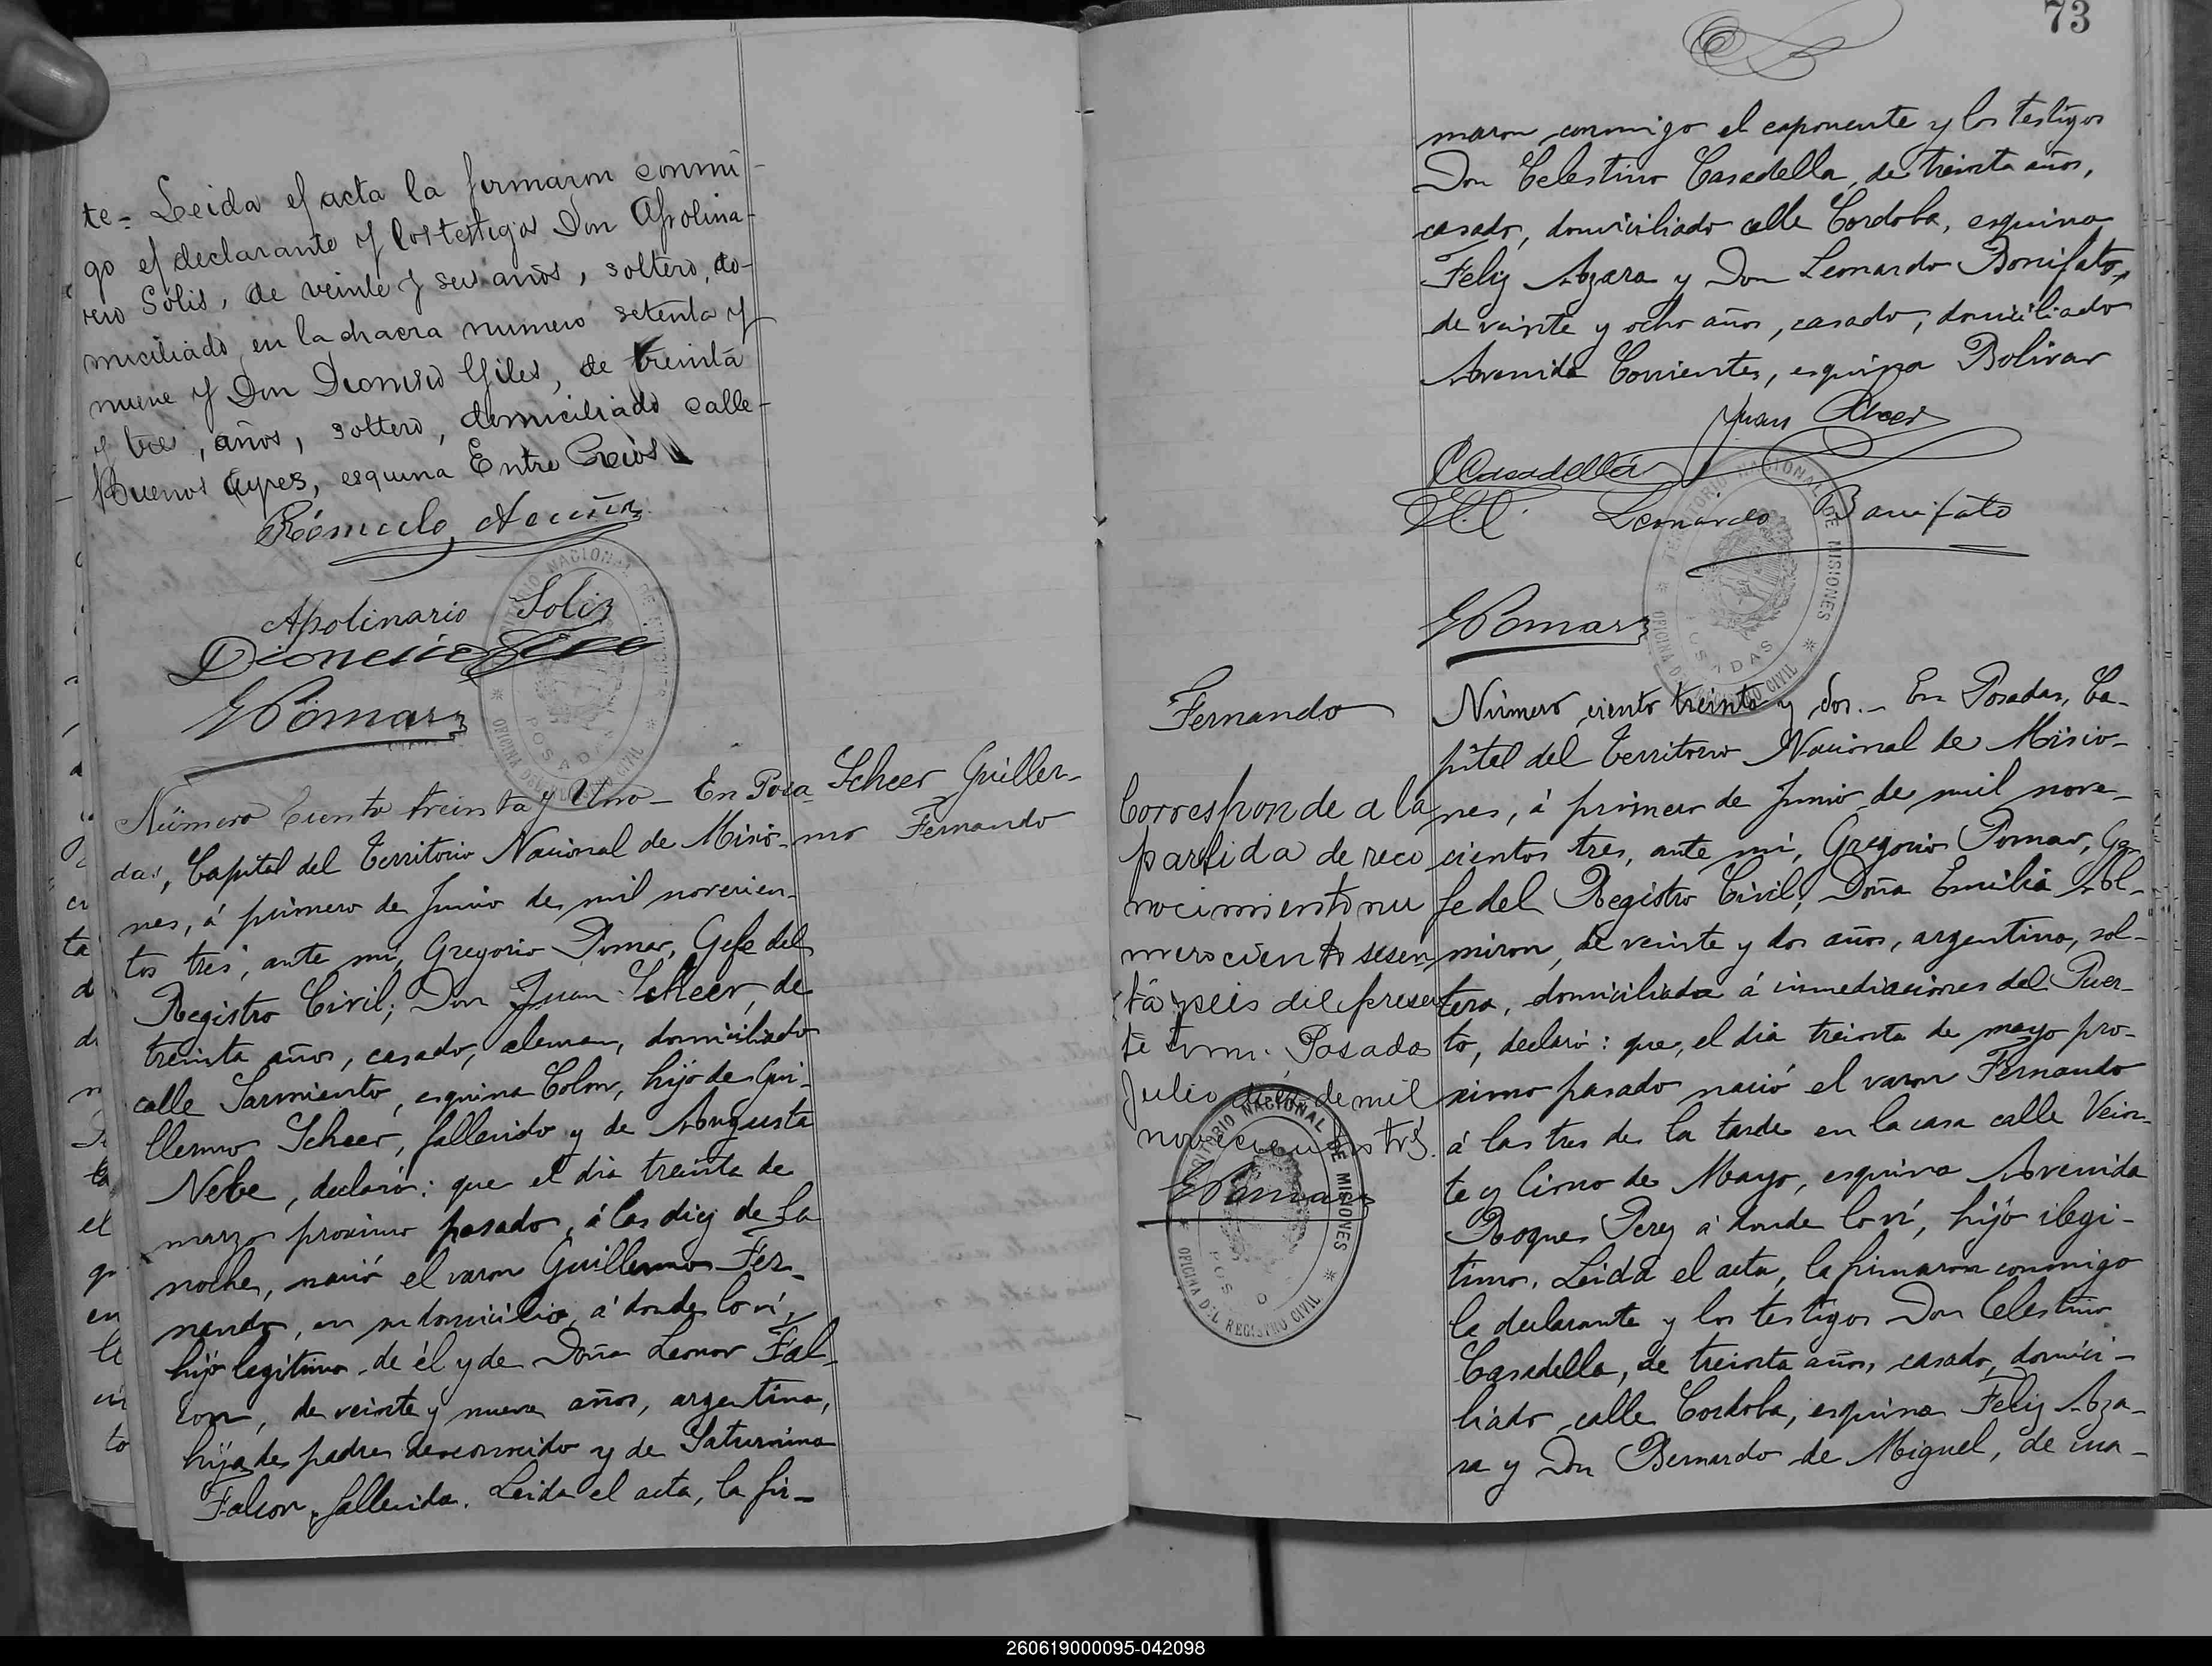 te= Leida el acta la firmaron conmi-
go el declarante y los testigos Don Apolina-
rio Solis, de veinte y seis años, soltero, do-
miciliado en la chacra numero setenta y
nueve y Don Dionisio Giles, de treinta
y tres, años, soltero, domiciliado calle
Buenos Ayres, esquina Entre Rios
Rómulo Acuña
Apolinario Solis
Dionicio
GPomar
TERRITORIO NACIONAL DE MISIONES
OFICINA DEL REGISTRO CIVIL
POSADAS
Número Ciento treinta y Uno- En Posa-
das, Capital del Territorio Nacional de Misio-
nes, á primero de Junio de mil novecien-
tos tres, ante mí, Gregorio Pomar, Gefe del
Registro Civil; Don Juan Scheer, de
treinta años, casado, aleman, domiciliado
calle Sarmiento, esquina Colon, hijo de Gui-
llermo Scheer, fallecido y de Augusta
Nebe, declaró: que el dia treinta de
marzo proximo pasado, á las diez de la
noche, nació el varon Guillermo Fer-
nando, en su domicilio, á donde lo ví,
hijo legítimo de él y de Doña Leonor Fal-
con, de veinte y nueve años, argentina,
hija de padre desconocido y de Saturnina
Falcon, fallecida. Leida el acta, la fir-
Scheer Guiller-
mo Fernando
73
maron conmigo el exponente y los testigos
Don Celestino Casadella, de treinta años,
casado, domiciliado calle Cordoba, esquina
Feliz Azara y Don Leonardo Bonifato,
de veinte y ocho años, casado, domiciliado
Avenida Corrientes, esquina Bolivar
Juan Scheer
CCasadella
Leonardo Bonifato
GPomar
TERRITORIO NACIONAL DE MISIONES
OFICINA DEL REGISTRO CIVIL
POSADAS
Fernando
Corresponde a la
partida de reco
nocimiento nu
mero ciento sesen
ta y seis del presen
te tomo. Posadas
Julio diez de mil
novecientos tres.
GPomar
TERRITORIO NACIONAL DE MISIONES
OFICINA DEL REGISTRO CIVIL
POSADAS
Número ciento treinta y dos.- En Posadas, Ca-
pital del Territorio Nacional de Misio-
nes, á primero de Junio de mil nove-
cientos tres, ante mí, Gregorio Pomar, Ge-
fe del Registro Civil; Doña Emilia Al-
miron, de veinte y dos años, argentina, sol-
tera, domiciliada á inmediaciones del Puer-
to, declaró: que, el dia treinta de mayo pro-
ximo pasado nació el varon Fernando
á las tres de la tarde en la casa calle Vein-
te y Cinco de Mayo, esquina Avenida
Roque Perez á donde lo ví, hijo ilegi-
timo. Leida el acta, la firmaron conmigo
la declarante y los testigos Don Celestino
Casadella, de treinta años, casado, domici-
liado calle Cordoba, esquina Feliz Aza-
ra y Don Bernardo de Miguel, de cua-
260619000095-042098